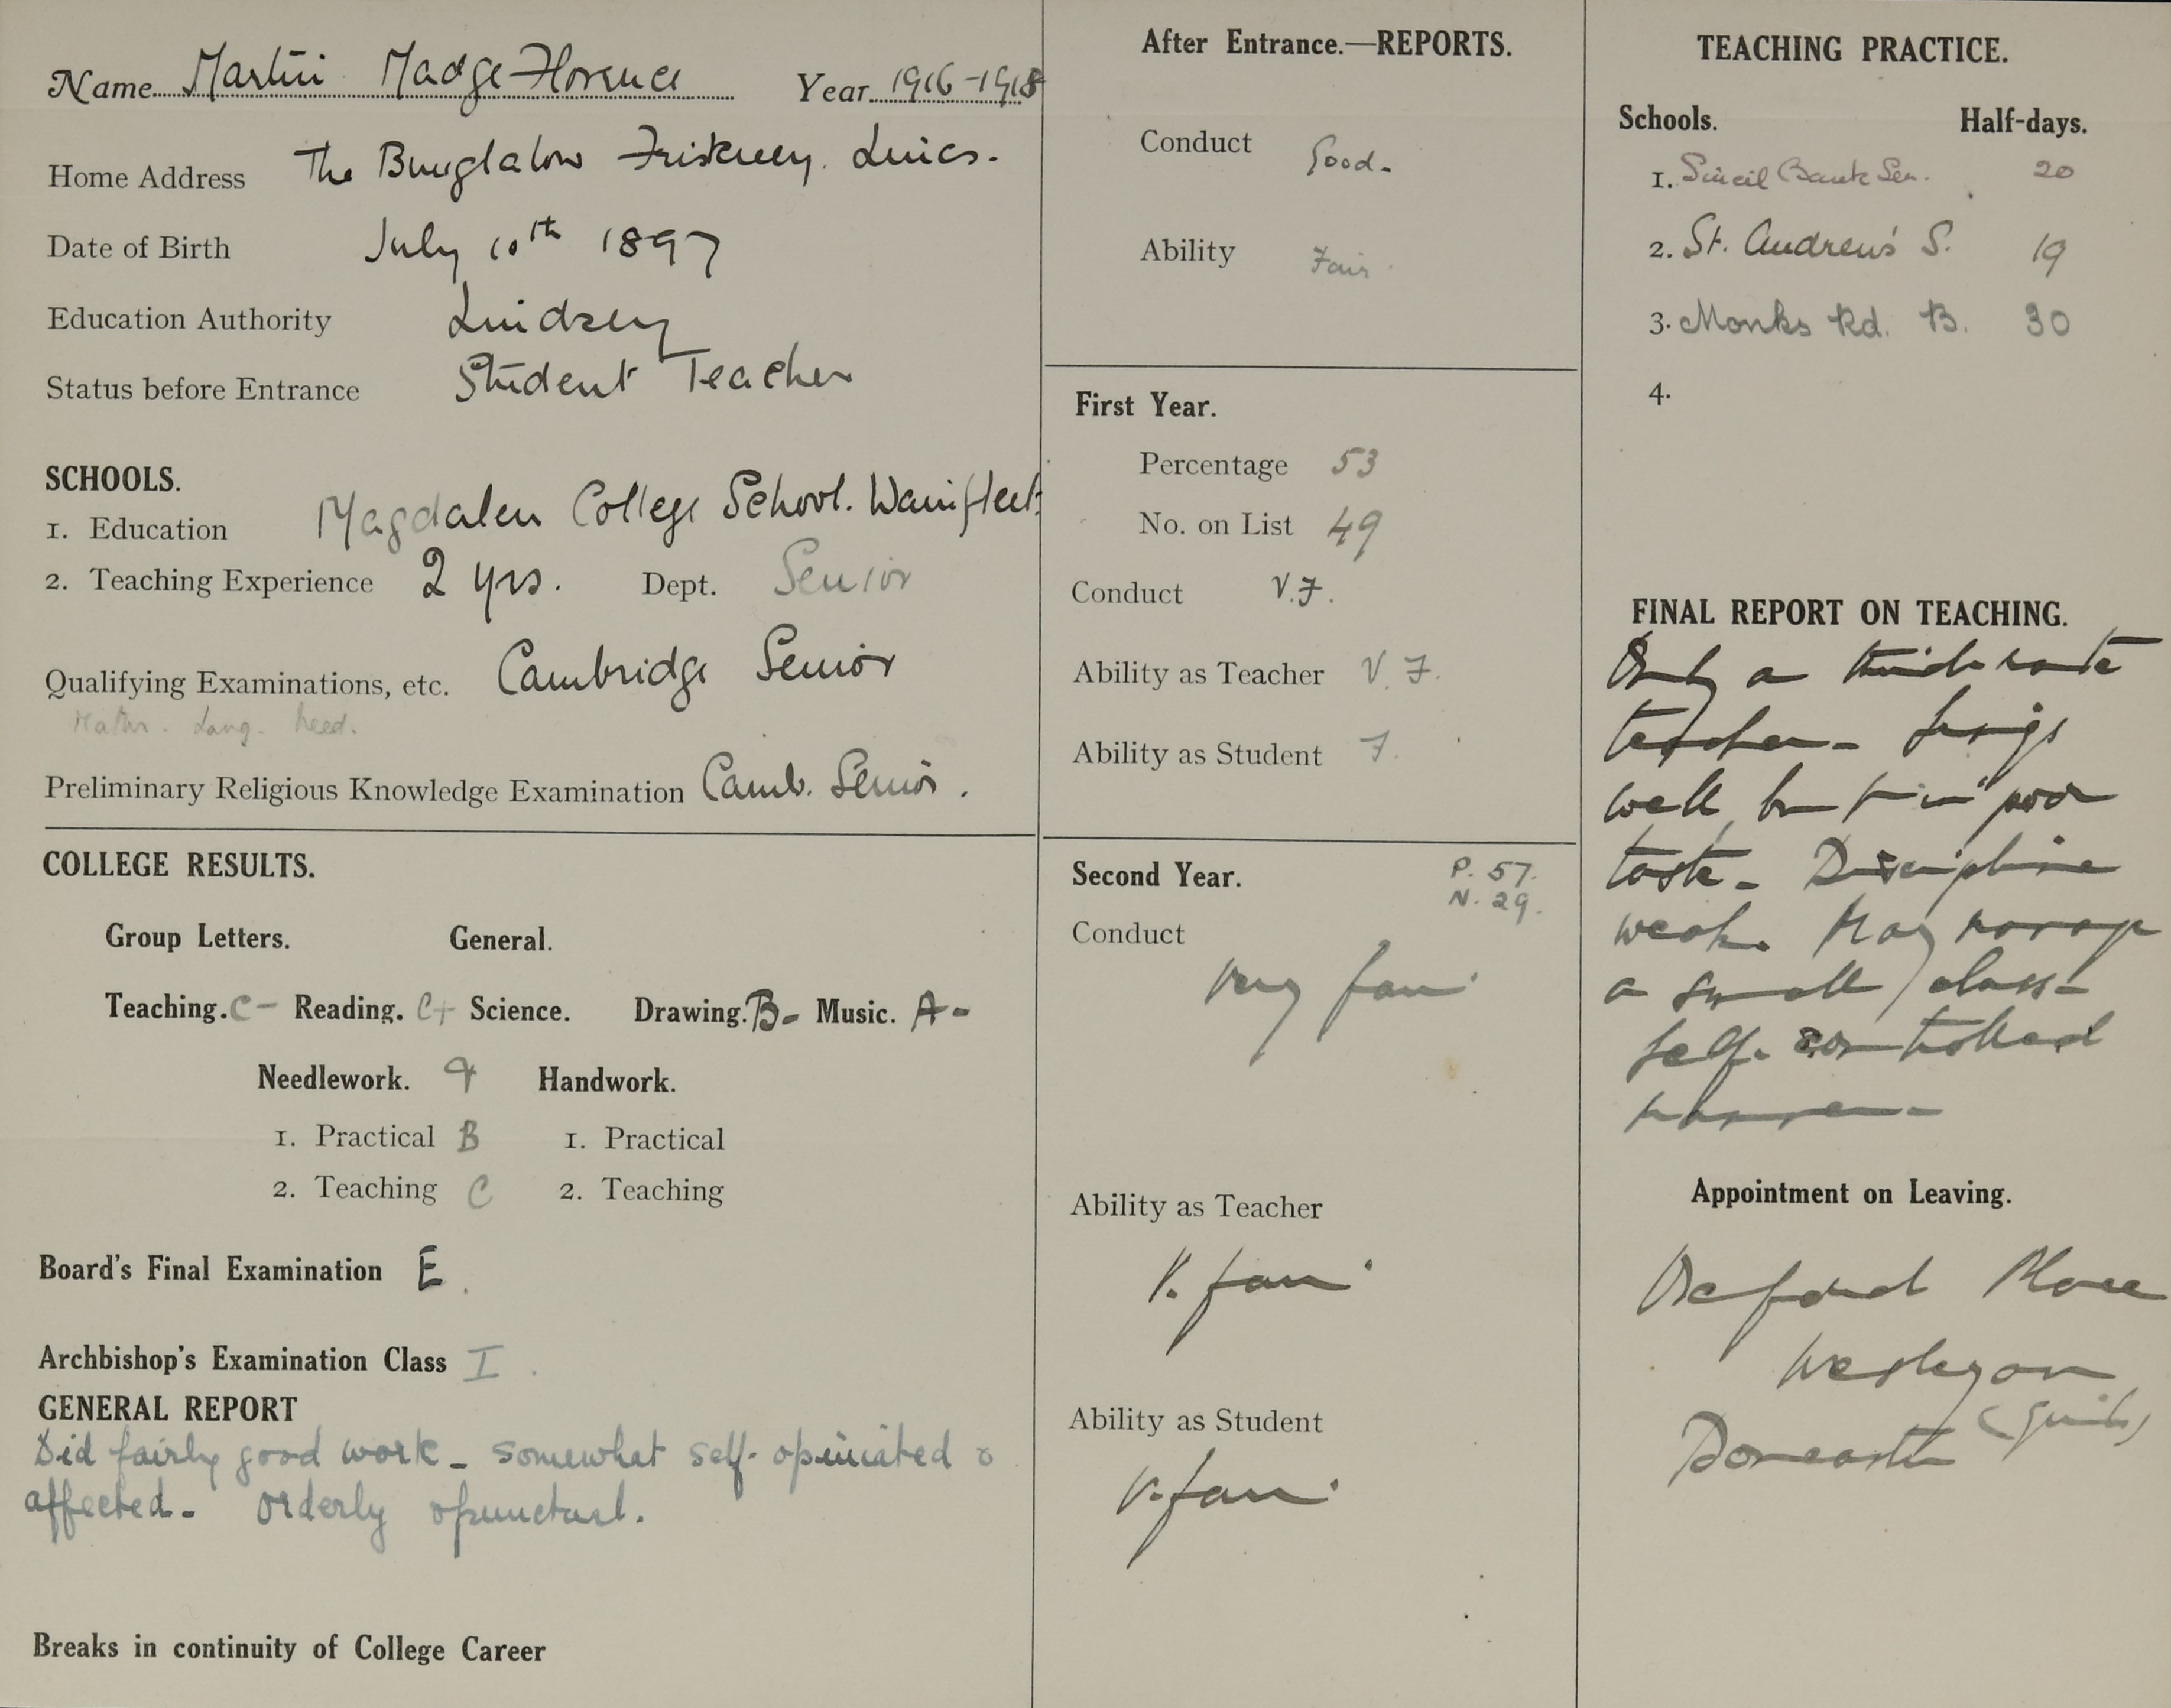 Name Martin Madge Florence Year 1916-1918
Home Address The Bungalow Friskney. Lincs.
Date of Birth July 10th 1897
Education Authority Lindsey
Status before Entrance Student Teacher
SCHOOLS.
1. Education Magdalen College School. Wainfleet.
2. Teaching Experience 2 yrs. Dept. Senior
Qualifying Examinations, etc. Cambridge Senior
Preliminary Religious Knowledge Examination Camb. Senior.
COLLEGE RESULTS.
Group Letters. General.
Teaching. C- Reading. C+ Science. Drawing. B- Music. A-
Needlework. Handwork.
1. Practical B 1. Practical
2. Teaching C 2. Teaching
Board's Final Examination E.
Archbishop's Examination Class I.
GENERAL REPORT
Did fairly good work - somewhat self-opiniated &
affected - Orderly & punctual.
Breaks in continuity of College Career
After Entrance.—REPORTS.
Conduct Good.
Ability Fair.
First Year.
Percentage 53
No. on List 49
Conduct V.F.
Ability as Teacher V.F.
Ability as Student F.
Second Year. P. 57.
N. 29.
Conduct
Very fair
Ability as Teacher
V. fair
Ability as Student
V. fair
TEACHING PRACTICE.
Schools. Half-days.
1. Sincil Bank Sen. 20
2. St. Andrew's S. 19
3. Monks Rd. B. 30
4.
FINAL REPORT ON TEACHING.
Only a third rate
teacher - Sings
well, but in poor
taste - Discipline
weak. May manage
a small class -
self-controlled
manner -
Appointment on Leaving.
Oxford Place
Wesleyan
(Girls)
Doncaster